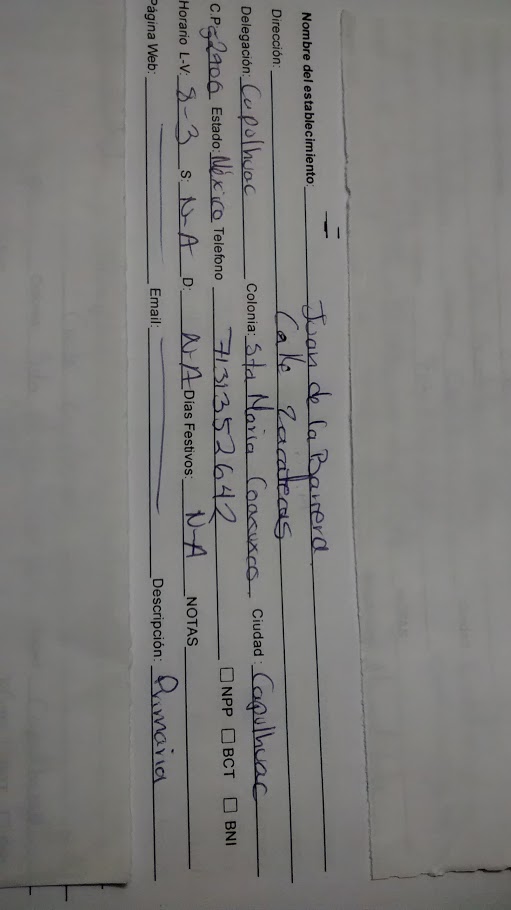 Nombre del establecimiento: Juan de la Barrera
Dirección: Calle Zacatecas
Delegación: Capulhuac Colonia: Sta Maria Coaxusco Ciudad: Capulhuac
C.P. 52700 Estado: México Telefono 7131352642 NPP BCT BNI
Horario L-V: 8-3 S: N-A D: N-A Días Festivos: N-A NOTAS
Página Web: Email: Descripción: Primaria